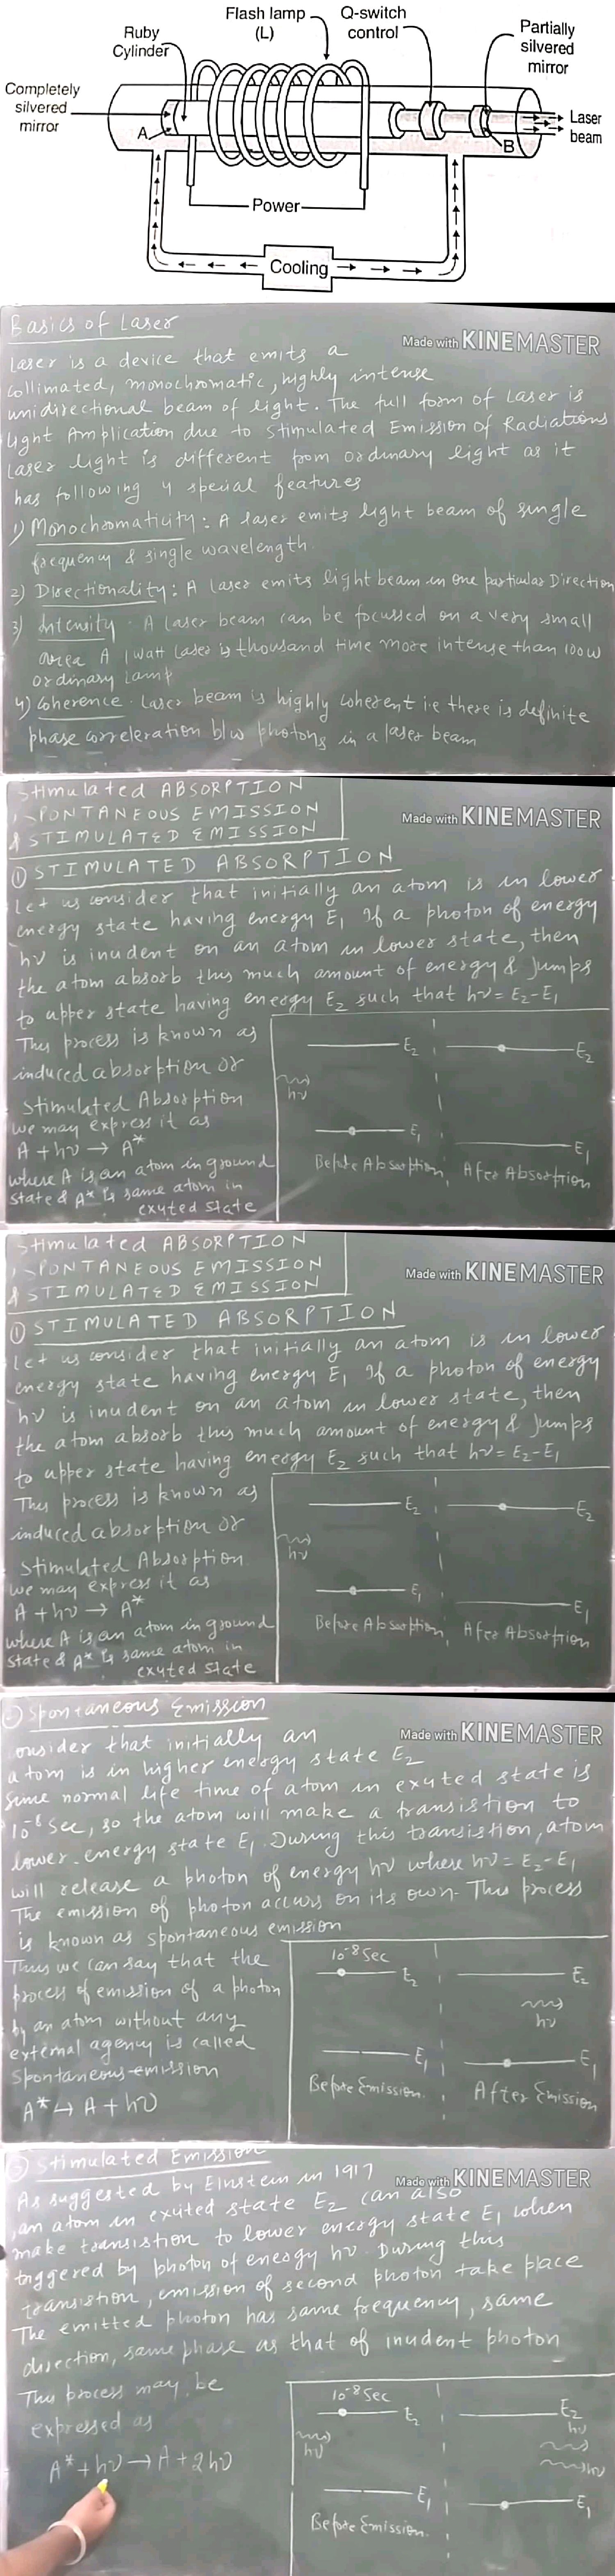 Flash lamp
(L)
Q-switch
control
Partially
silvered
mirror
Ruby
Cylinder
Completely
silvered
mirror
A
B
Laser
beam
Power
Cooling
Basics of Laser
Made with KINEMASTER
Laser is a device that emits a
collimated, monochromatic, highly intense
unidirectional beam of light. The full form of Laser is
Light Amplication due to Stimulated Emission of Radiations
Laser light is different from ordinary light as it
has following 4 special features
1) Monochromaticity: A laser emits light beam of single
frequency & single wavelength.
2) Directionality: A laser emits light beam in one particular Direction
3) Intensity - A laser beam can be focussed on a very small
area A 1 watt Laser is thousand time more intense than 100 W
ordinary lamp
4) Coherence - Laser beam is highly coherent i.e there is definite
phase correleration b/w photons in a laser beam
Stimulated ABSORPTION
, SPONTANEOUS EMISSION
& STIMULATED EMISSION
Made with KINEMASTER
① STIMULATED ABSORPTION
Let us consider that initially an atom is in lower
energy state having energy E₁ If a photon of energy
hν is inudent on an atom in lower state, then
the atom absorb this much amount of energy & jumps
to upper state having energy E₂ such that hν = E₂-E₁
This process is known as
induced absorption or
Stimulated Absorption
we may express it as
A + hν → A*
where A is an atom in ground
state & A* is same atom in
exuted state
E₂
E₂
hν
E₁
E₁
Before Absorption
After Absorption
Stimulated ABSORPTION
, SPONTANEOUS EMISSION
& STIMULATED EMISSION
Made with KINEMASTER
① STIMULATED ABSORPTION
Let us consider that initially an atom is in lower
energy state having energy E₁ If a photon of energy
hν is inudent on an atom in lower state, then
the atom absorb this much amount of energy & jumps
to upper state having energy E₂ such that hν = E₂-E₁
This process is known as
induced absorption or
Stimulated Absorption
we may express it as
A + hν → A*
where A is an atom in ground
state & A* is same atom in
exuted state
E₂
E₂
hν
E₁
E₁
Before Absorption
After Absorption
② Spontaneous Emission
Made with KINEMASTER
consider that initially an
atom is in higher energy state E₂
Since normal life time of atom in exuted state is
10⁻⁸ Sec, so the atom will make a transistion to
lower energy state E₁. During this transistion, atom
will release a photon of energy hν where hν = E₂-E₁
The emission of photon occurs on its own. This process
is known as spontaneous emission
Thus we can say that the
process of emission of a photon
by an atom without any
external agency is called
Spontaneous emission
A* → A + hν
10⁻⁸ Sec
E₂
E₂
hν
E₁
E₁
Before Emission.
After Emission
③ Stimulated Emission
Made with KINEMASTER
As suggested by Einstein in 1917
,an atom in exuted state E₂ can also
make transistion to lower energy state E₁ when
triggered by photon of energy hν. During this
transistion, emission of second photon take place
The emitted photon has same frequency, same
direction, same phase as that of inudent photon
This process may be
expressed as
A* + hν → A + 2hν
10⁻⁸ Sec
E₂
E₂
hν
hν
hν
E₁
E₁
Before Emission.